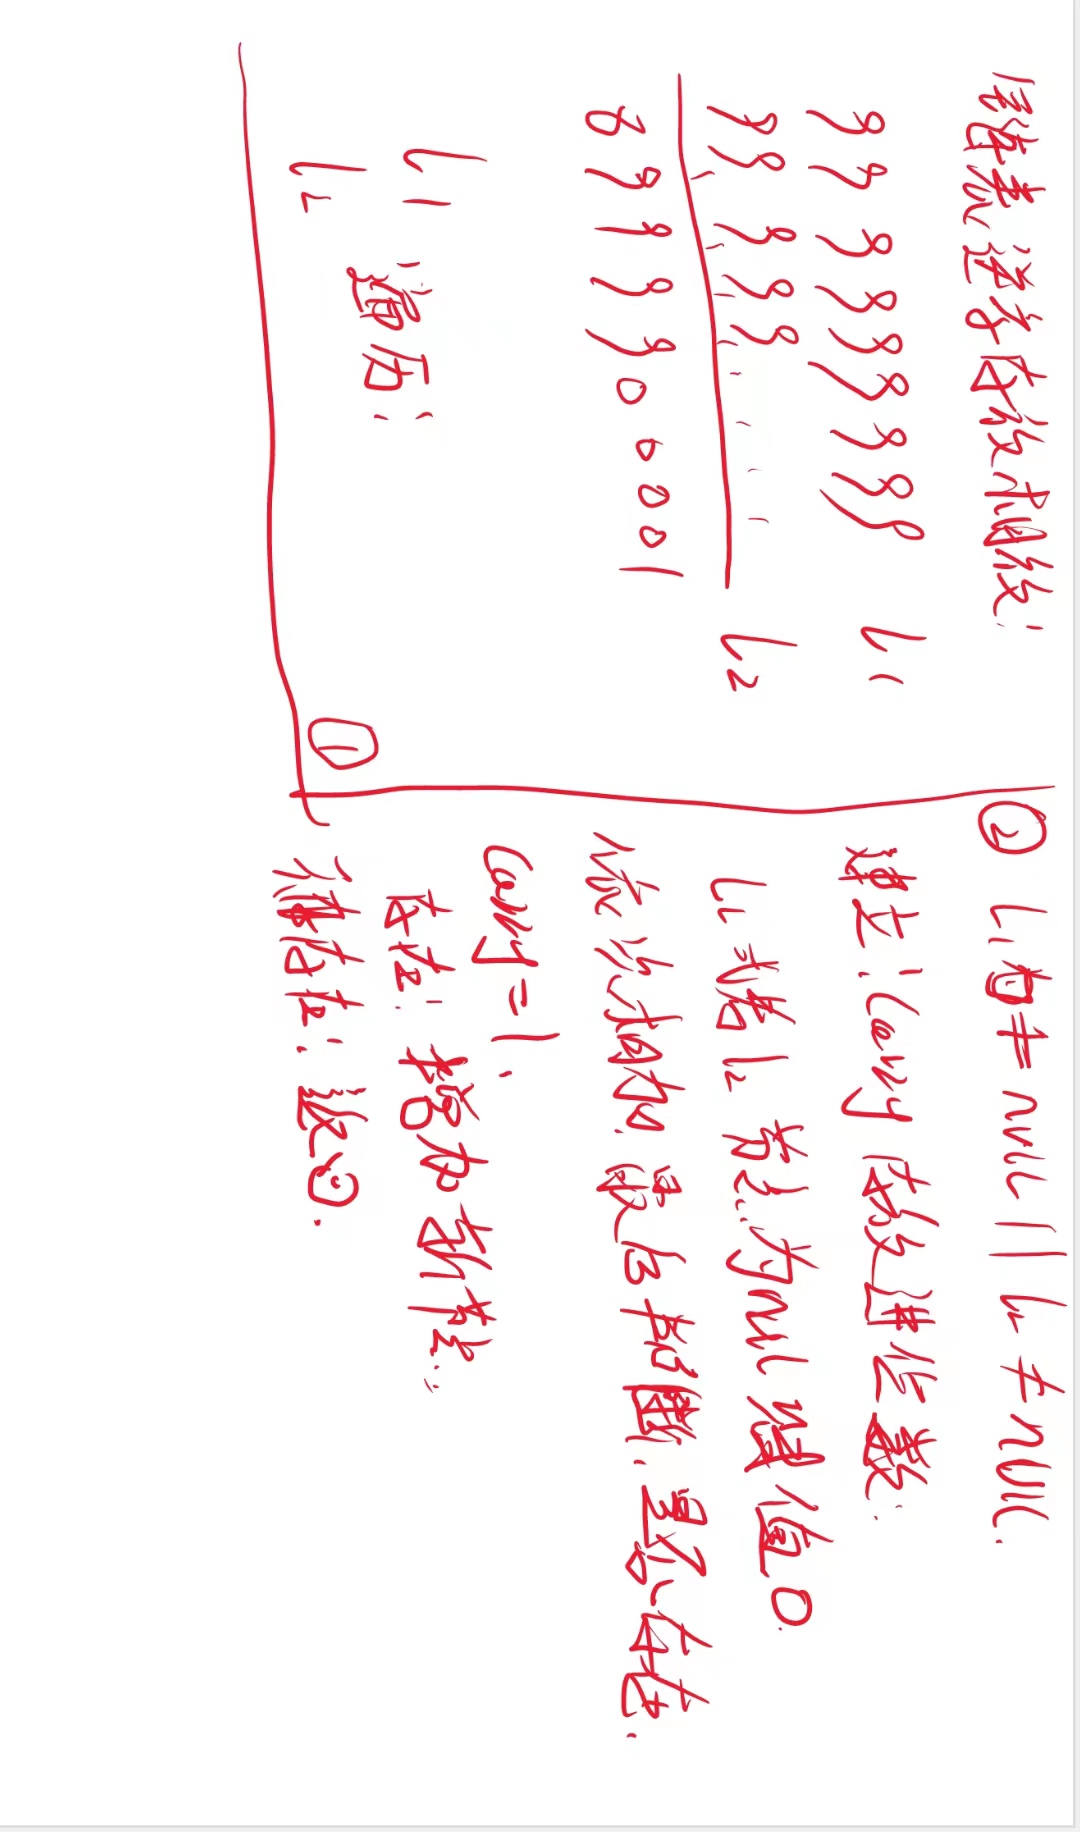 链表逆序存放相放:
999999999 L1
99999 L2
8999900001
L1
遍历:
L2
①
② L1 ≠ null || L2 ≠ null.
建立: Carry 存放进位数:
L1 或者 L2 节点为null 赋值0.
依次相加, 最后判断, 是否存在.
Carry = 1.
存在: 增加新节点.
不存在: 返回.